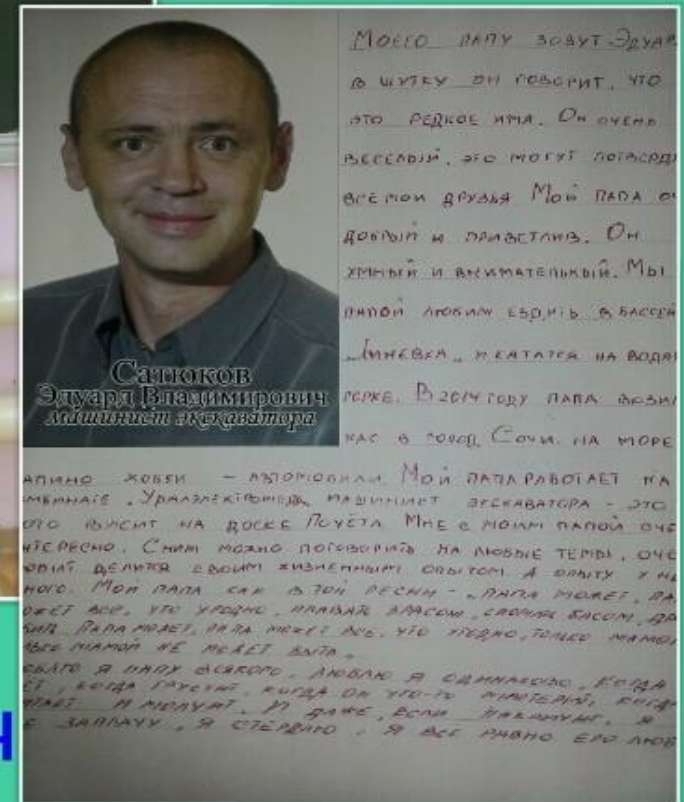 МОЕГО ПАПУ ЗОВУТ ЭДУАР
В ШУТКУ ОН ГОВОРИТ, ЧТО
ЭТО РЕДКОЕ ИМЯ. ОН ОЧЕНЬ
ВЕСЕЛЫЙ, ЭТО МОГУТ ПОТВЕРД
ВСЕ МОИ ДРУЗЬЯ МОЙ ПАПА ОЧ
ДОБРЫЙ И ПРИВЕТЛИВ. ОН
УМНЫЙ И ВНИМАТЕЛЬНЫЙ. МЫ
ПАПОЙ ЛЮБИМ ЕЗДИТЬ В БАССЕЙ
И КАТАТСЯ НА ВОДЯ
ГОРКЕ. В 2014 ГОДУ ПАПА ВОЗИЛ
НАС В ГОРОД СОЧИ. НА МОРЕ
Сатюков
Эдуард Владимирович
машинист экскаватора
АПИНО ХОББИ – АВТОМОБИЛИ МОЙ ПАПА РАБОТАЕТ НА
МБИНАТЕ "УРАЛЭЛЕКТРОМЕДЬ" МАШИНИСТ ЭКСКАВАТОРА – ЭТО
ОТО ВИСИТ НА ДОСКЕ ПОЧЁТА МНЕ С МОИМ ПАПОЙ ОЧЕ
НТЕРЕСНО. С НИМ МОЖНО ПОГОВОРИТЬ НА ЛЮБЫЕ ТЕМЫ, ОЧЕ
ДЕЛИТСЯ СВОИМ ЖИЗНЕННЫМ ОПЫТОМ А ОПЫТУ У НЕ
НОГО. МОЙ ПАПА КАК В ТОЙ ПЕСНИ – "ПАПА МОЖЕТ, ПА
ОЖЕТ ВСЕ, ЧТО УГОДНО, ПЛАВАТЬ БРАСОМ, СПОРИТЬ БАСОМ, ДР
ПАПА МОЖЕТ, ПАПА МОЖЕТ ВСЕ, ЧТО УГОДНО, ТОЛЬКО МАМО
МАМОЙ НЕ МОЖЕТ БЫТЬ.
Я ПАПУ ВСЯКОГО, ЛЮБЛЮ Я ОДИНАКОВО, КОГДА
ЕТ, КОГДА ГРУСТИТ, КОГДА ОН ЧТО-ТО МАСТЕРИТ, КОГД
И МОЛЧИТ. И ДАЖЕ, ЕСЛИ НАКАЖУТ, Я
Е ЗАПЛАЧУ, Я СТЕРПЛЮ, Я ВСЕ РАВНО ЕГО ЛЮБ